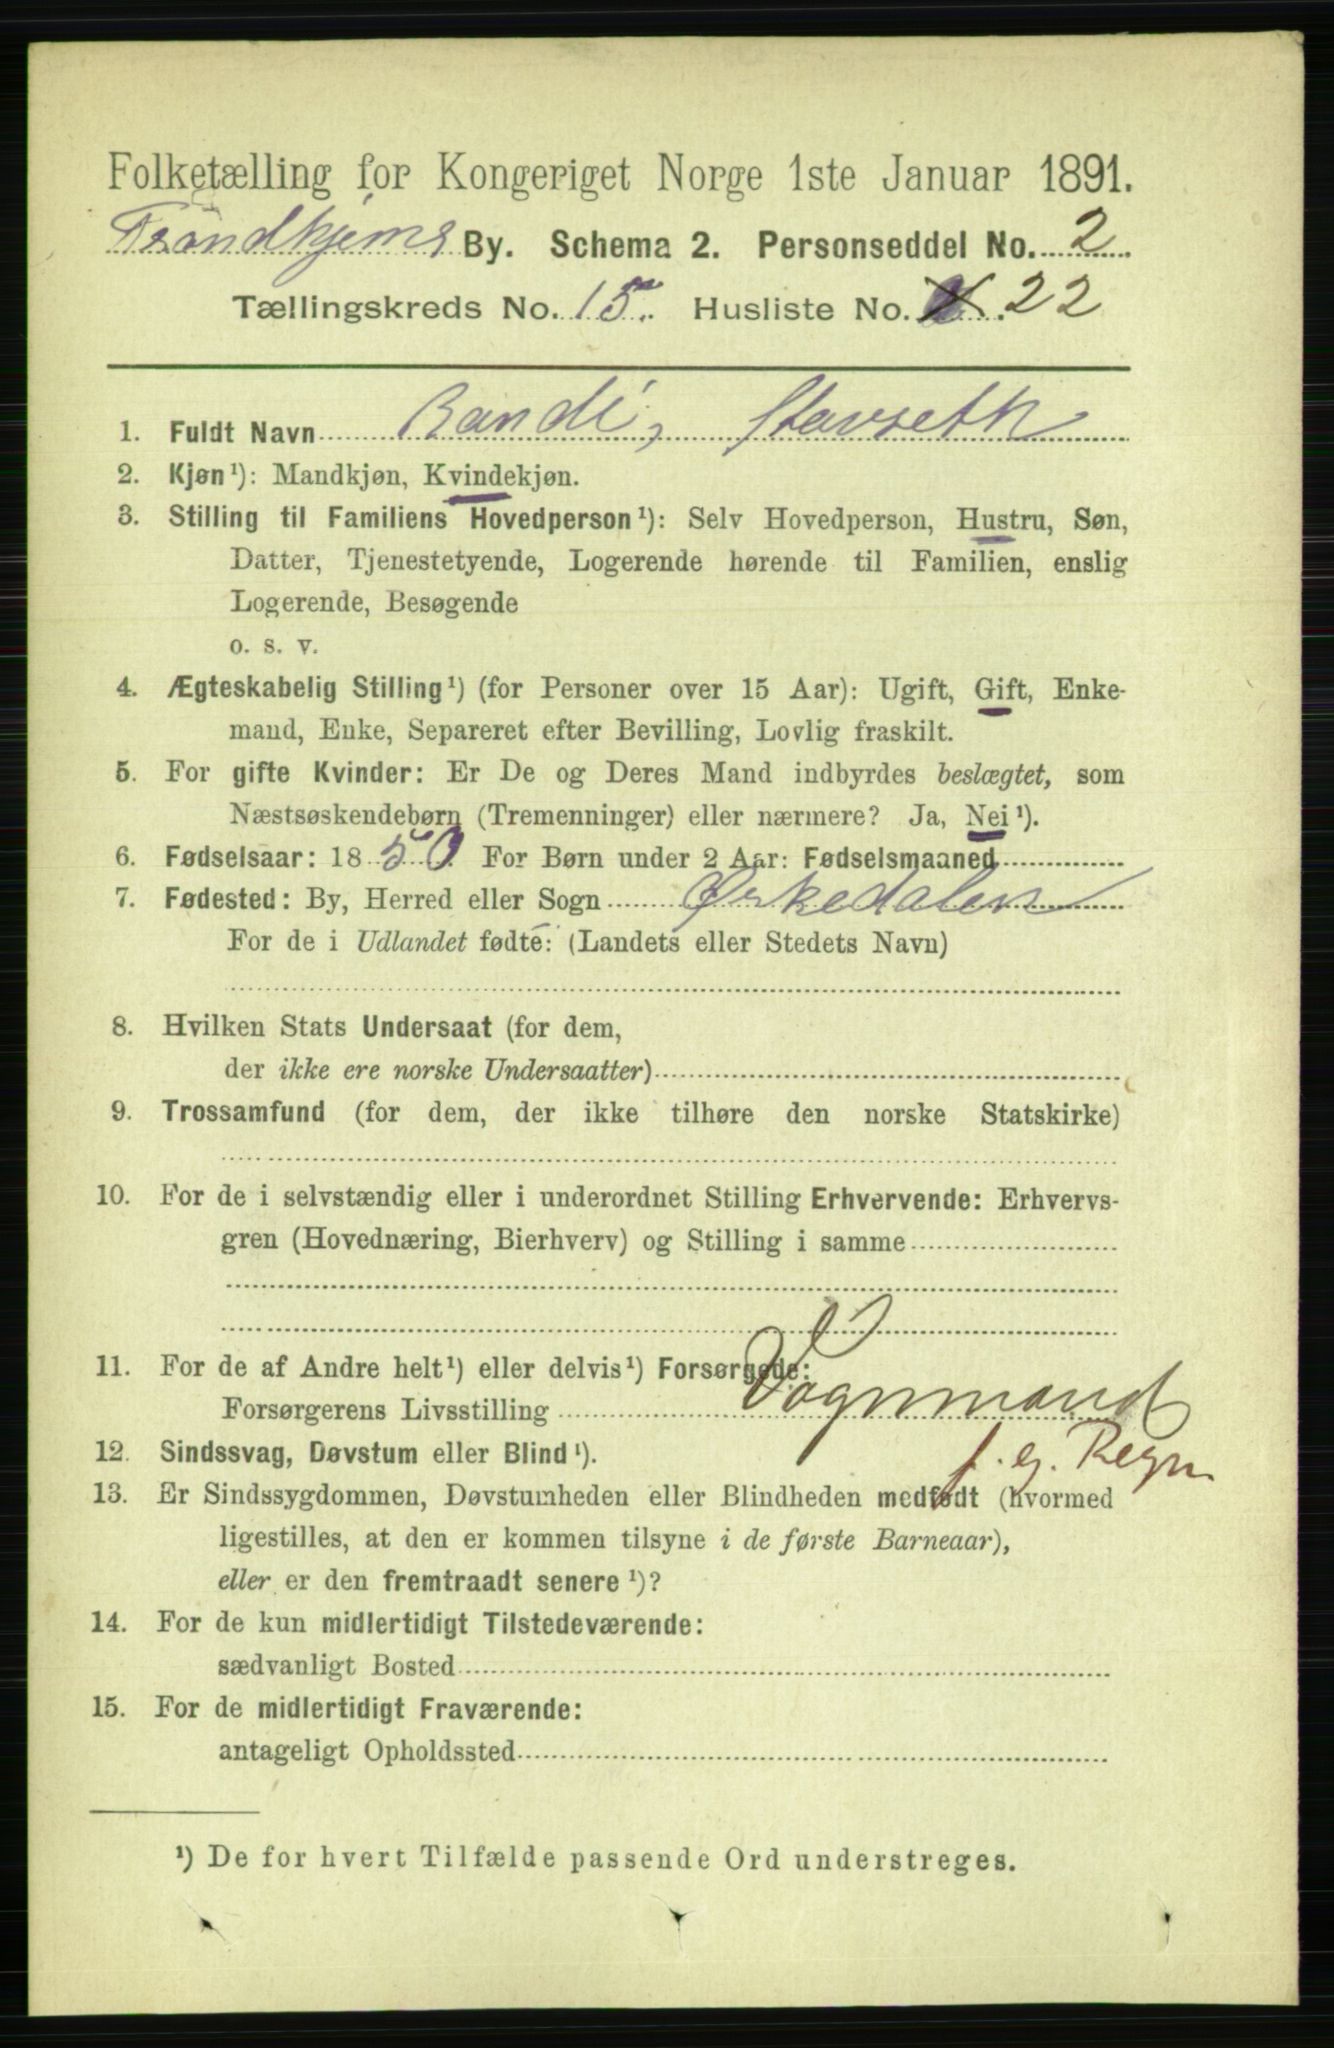 Folketælling for Kongeriget Norge 1ste Januar 1891.
Trondhjems By. Schema 2. Personseddel No. 2
Tællingskreds No. 15. Husliste No. 22
1. Fuldt Navn Randi, Stavseth
2. Kjøn¹): Mandkjøn, Kvindekjøn.
3. Stilling til Familiens Hovedperson¹): Selv Hovedperson, Hustru, Søn,
Datter, Tjenestetyende, Logerende hørende til Familien, enslig
Logerende, Besøgende
o. s. v.
4. Ægteskabelig Stilling¹) (for Personer over 15 Aar): Ugift, Gift, Enke-
mand, Enke, Separeret efter Bevilling, Lovlig fraskilt.
5. For gifte Kvinder: Er De og Deres Mand indbyrdes beslægtet, som
Næstsøskendebørn (Tremenninger) eller nærmere? Ja, Nei¹).
6. Fødselsaar: 1850 For Børn under 2 Aar: Fødselsmaaned
7. Fødested: By, Herred eller Sogn Ørkedalen
For de i Udlandet fødte: (Landets eller Stedets Navn)
8. Hvilken Stats Undersaat (for dem,
der ikke ere norske Undersaatter)
9. Trossamfund (for dem, der ikke tilhøre den norske Statskirke)
10. For de i selvstændig eller i underordnet Stilling Erhvervende: Erhvervs-
gren (Hovednæring, Bierhverv) og Stilling i samme
11. For de af Andre helt¹) eller delvis¹) Forsørgede:
Forsørgerens Livsstilling Vognmand
f. eg. Regn
12. Sindssvag, Døvstum eller Blind¹).
13. Er Sindssygdommen, Døvstumheden eller Blindheden medfødt (hvormed
ligestilles, at den er kommen tilsyne i de første Barneaar),
eller er den fremtraadt senere¹)?
14. For de kun midlertidigt Tilstedeværende:
sædvanligt Bosted
15. For de midlertidigt Fraværende:
antageligt Opholdssted
¹) De for hvert Tilfælde passende Ord understreges.